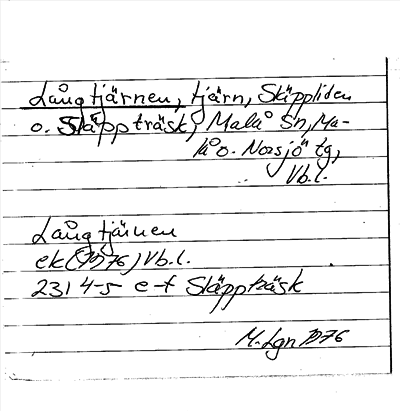 Långtjärnen, tjärn, Skäppliden
o. Skäppträsk, Malå Sn, Ma-
lå o. Norsjö tg,
Vb.l.
Långtjärnen
ek (1976) Vb.l.
231 4-5 e-f Skäppträsk
M. Lgn 1976